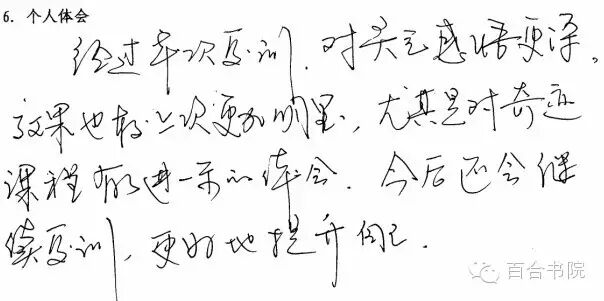 6. 个人体会
经过本次复训，对关元感悟更深，
效果也较上次更加明显，尤其是对奇迹
课程有了进一步的体会．今后还会继
续复训，更好地提升自己．
百合书院